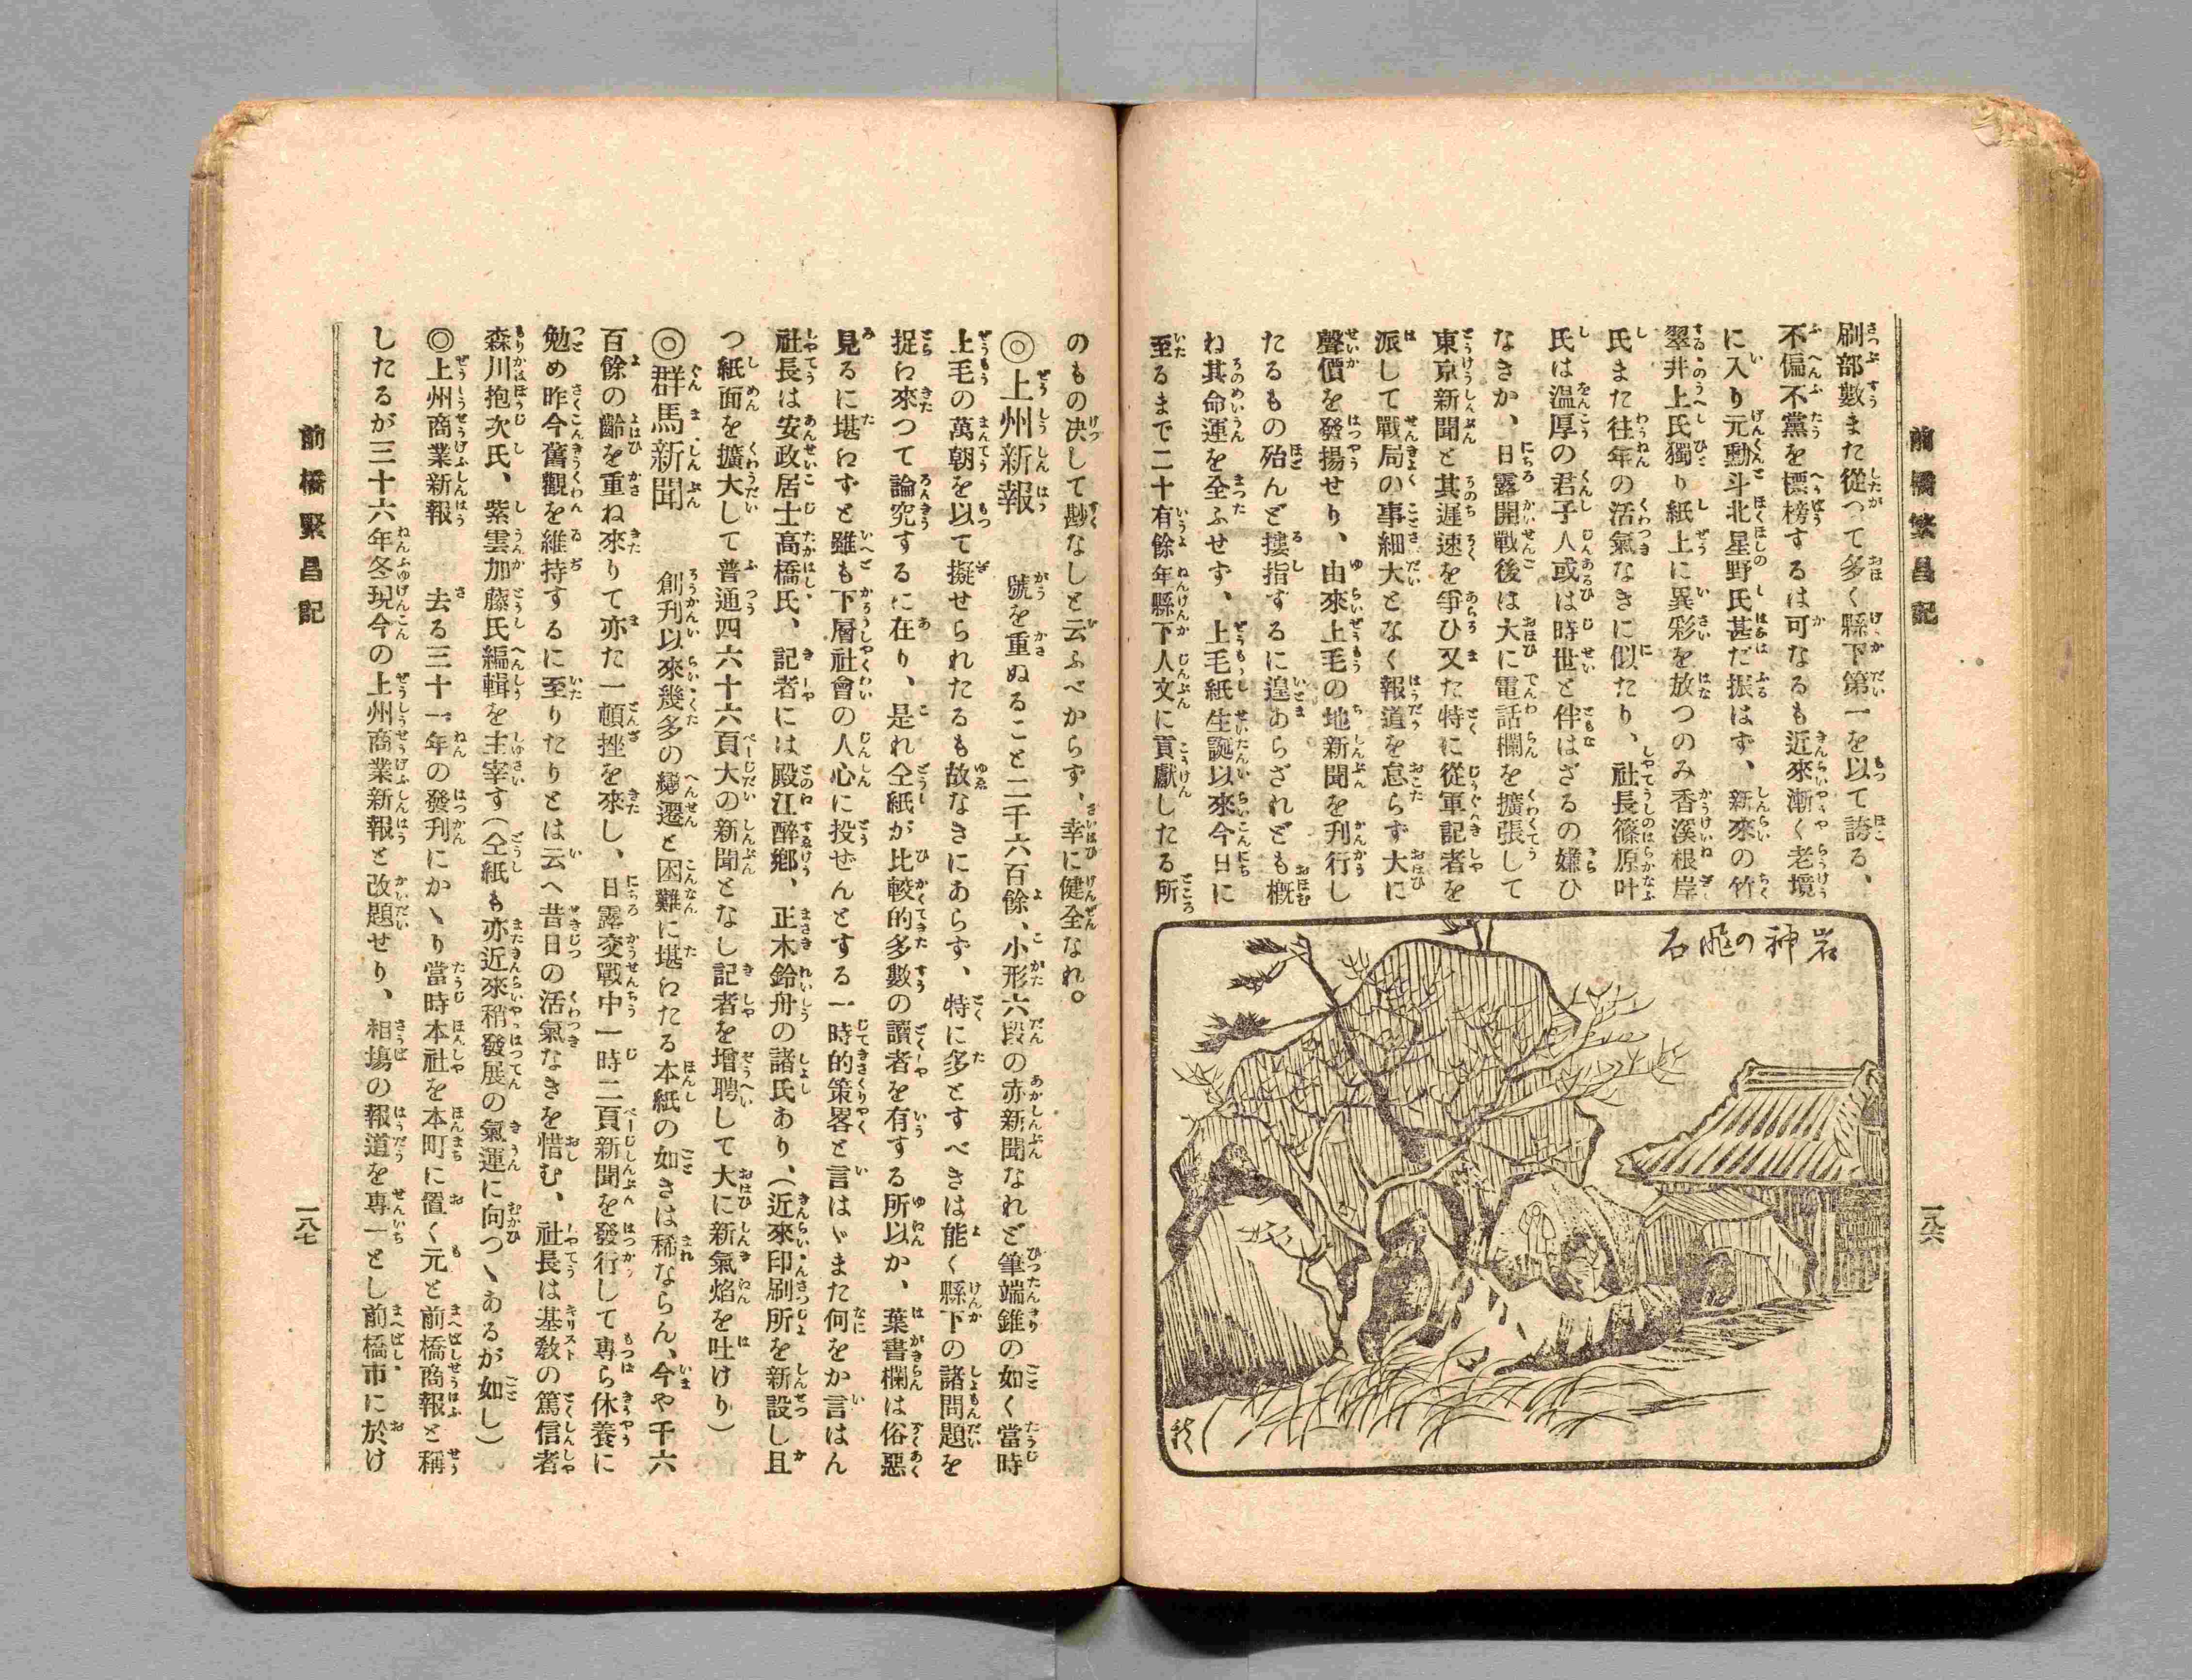 前橋繁昌記
一八六
刷部數また從つて多く縣下第一を以て誇る、
不偏不黨を標榜するは可なるも近來漸く老境
に入り元勳斗北星野氏甚だ振はず、新來の竹
翠井上氏獨り紙上に異彩を放つのみ香溪根岸
氏また往年の活氣なきに似たり、社長篠原叶
氏は溫厚の君子人或は時世と伴はざるの嫌ひ
なきか、日露開戰後は大に電話欄を擴張して
東京新聞と其遲速を爭ひ又た特に從軍記者を
派して戰局の事細大となく報道を怠らず大に
聲價を發揚せり、由來上毛の地新聞を刋行し
たるもの殆んど摟指するに遑あらざれども槪
ね其命運を全ふせす、上毛紙生誕以來今日に
至るまで二十有餘年縣下人文に貢獻したる所
岩神の飛石
のもの决して尠なしと云ふべからず、幸に健全なれ。
◎上州新報　號を重ぬること二千六百餘、小形六段の赤新聞なれど筆端錐の如く當時
上毛の萬朝を以て擬せられたるも故なきにあらず、特に多とすべきは能く縣下の諸問題を
捉ね來つて論究するに在り、是れ仝紙が比較的多數の讀者を有する所以か、葉書欄は俗惡
見るに堪ねずと雖も下層社會の人心に投ぜんとする一時的策畧と言はゞまた何をか言はん
社長は安政居士高橋氏、記者には殿江醉鄕、正木鈴舟の諸氏あり、（近來印刷所を新設し且
つ紙面を擴大して普通四六十六頁大の新聞となし記者を增聘して大に新氣焰を吐けり）
◎群馬新聞　創刋以來幾多の變遷と困難に堪ねたる本紙の如きは稀ならん、今や千六
百餘の齡を重ね來りて亦た一頓挫を來し、日露交戰中一時二頁新聞を發行して專ら休養に
勉め昨今舊觀を維持するに至りたりとは云へ昔日の活氣なきを惜む、社長は基敎の篤信者
森川抱次氏、紫雲加藤氏編輯を主宰す（仝紙も亦近來稍發展の氣運に向つゝあるが如し）
◎上州商業新報　去る三十一年の發刋にかゝり當時本社を本町に置く元と前橋商報と稱
したるが三十六年冬現今の上州商業新報と改題せり、相塲の報道を專一とし前橋市に於け
前橋繁昌記
一八七